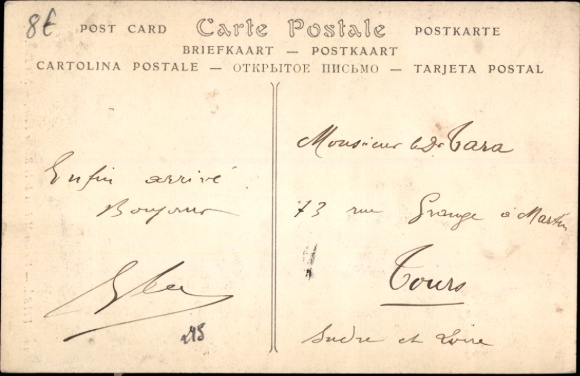 8€
POST CARD Carte Postale POSTKARTE
BRIEFKAART — POSTKAART
CARTOLINA POSTALE — ОТКРЫТОЕ ПИСЬМО — TARJETA POSTAL
Enfin arrivé
Bonjour
245
Monsieur le Dr Tara
73 rue Grange à Martin
Tours
Indre et Loire